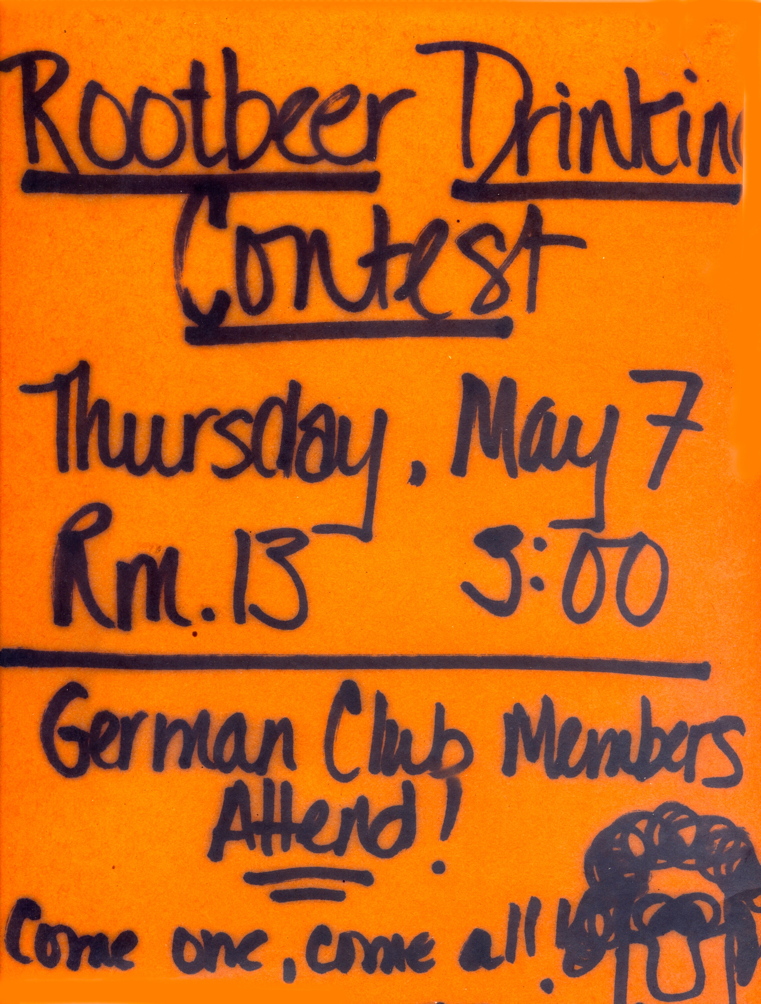 Rootbeer Drinking
Contest
Thursday, May 7
Rm. 13 3:00
German Club Members
Attend!
Come one, come all!!